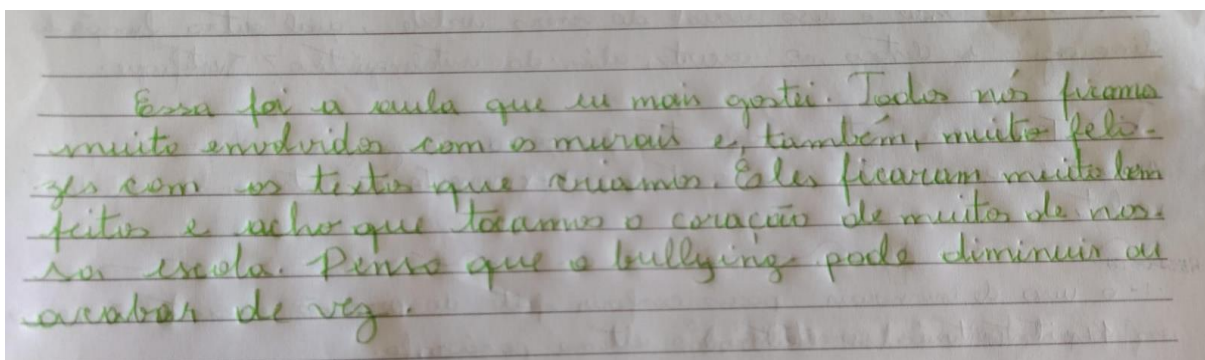 Essa foi a aula que eu mais gostei. Todos nós ficamos
muito envolvidos com os murais e, também, muito feli-
zes com os textos que criamos. Eles ficaram muito bem
feitos e acho que tocamos o coração de muitos de nos-
sa escola. Penso que o bullying pode diminuir ou
acabar de vez.